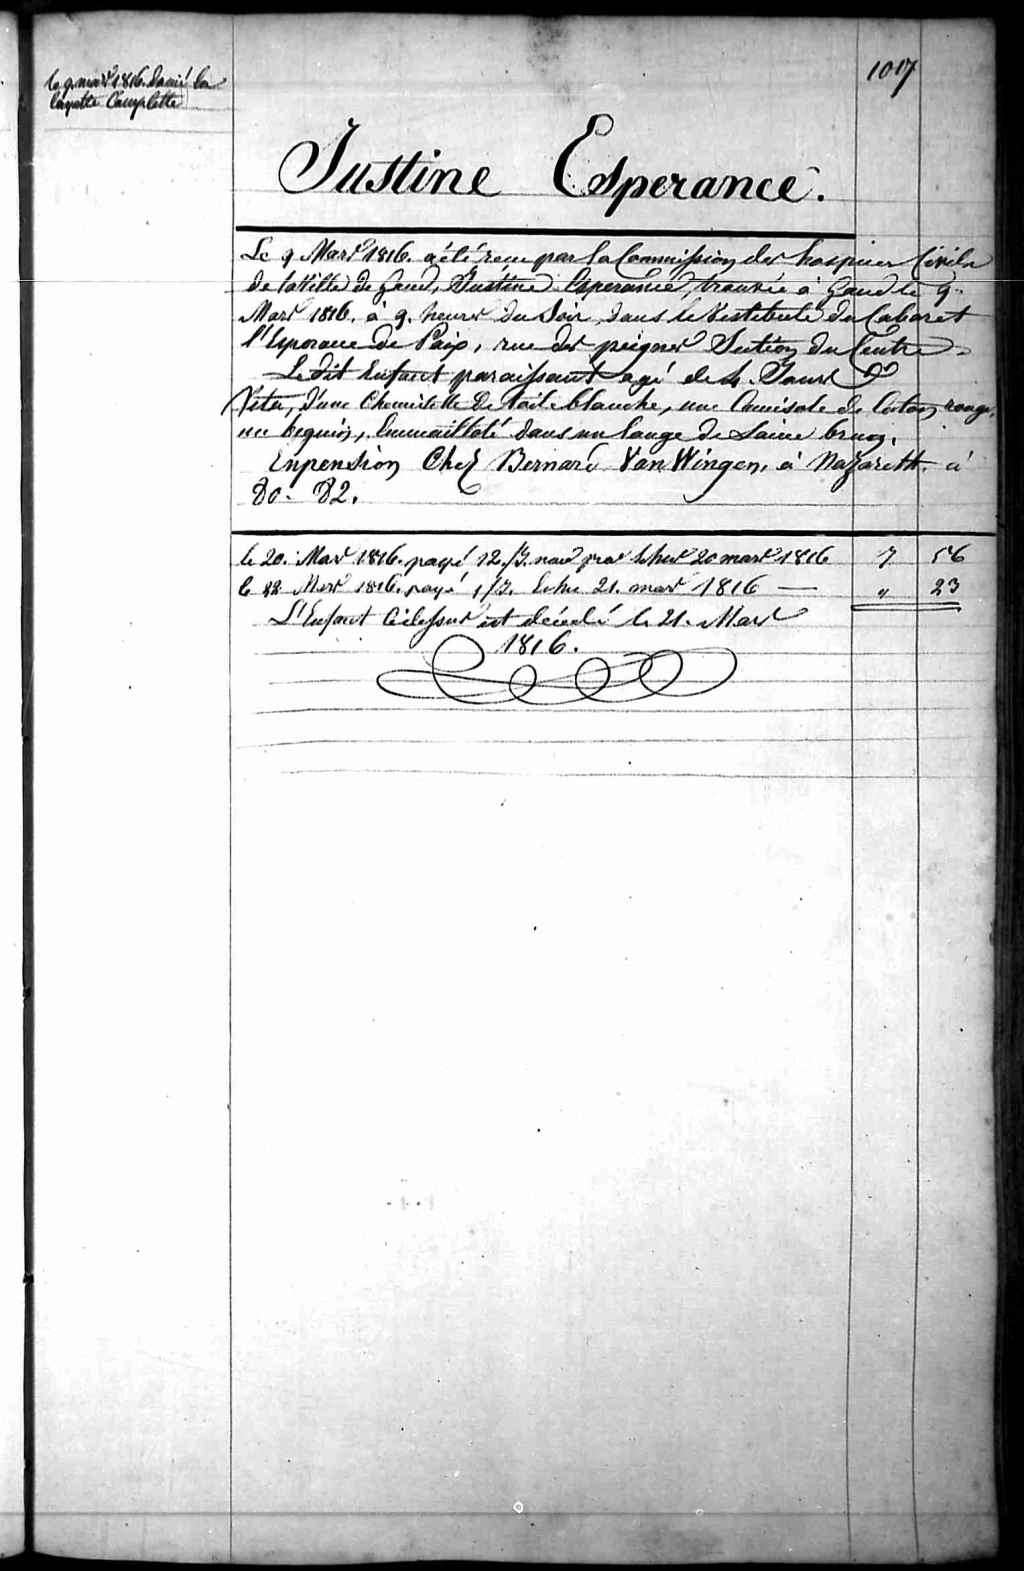 1017
le 9 mars 1816. donné la
layette Complette
Justine Esperance.
Le 9 Mars 1816. a été recue par la Commission des hospices Civils
de la Ville de Gand, Justine Esperance, trouvée à Gand le 9.
Mars 1816. à 9. heures du Soir, dans le Vestibule du Cabaret
l'Esperance de Paix, rue des peignes Section du Centre.
Le dit Enfant paraissant agé de 4. Jours
Vetu, d'une Chemisette de toile blanche, une Camisole de Coton rouge,
un beguin, Emmailloté dans un lange de Laine brun.
En pension Chez Bernard Van Wingen, à Nazareth à
80. 82.
le 20. Mars 1816. payé 12./J. échu 20 mars 1816 7 56
le 22 Mars 1816. payé 1/J. Echu 21. mars 1816 — " 23
L'Enfant Cidessus est décédé le 21. Mars
1816.